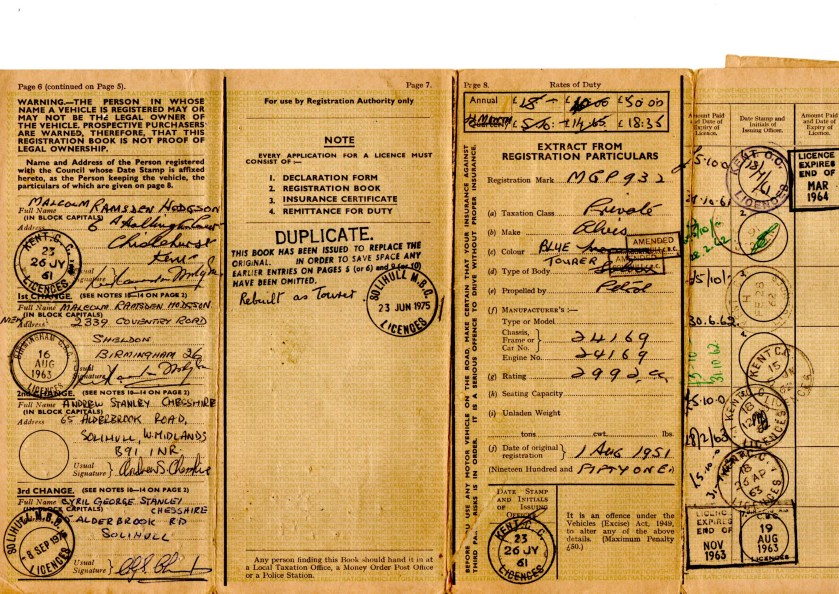 Page 6 (continued on Page 5).
WARNING.—THE PERSON IN WHOSE
NAME A VEHICLE IS REGISTERED MAY OR
MAY NOT BE THE LEGAL OWNER OF
THE VEHICLE. PROSPECTIVE PURCHASERS
ARE WARNED, THEREFORE, THAT THIS
REGISTRATION BOOK IS NOT PROOF OF
LEGAL OWNERSHIP.
Name and Address of the Person registered
with the Council whose Date Stamp is affixed
hereto, as the Person keeping the vehicle, the
particulars of which are given on page 8.
MALCOLM RAMSDEN HODGSON
Full Name
(IN BLOCK CAPITALS)
Address
Chislehurst
Kent
KENT C.C.
23
26 JY
61
LICENCES
Usual
Signature
1st CHANGE. (SEE NOTES 10—14 ON PAGE 2)
Full Name MALCOLM RAMSDEN HODGSON
(IN BLOCK CAPITALS)
NEW Address 2339 COVENTRY ROAD
SHELDON
BIRMINGHAM 26
16
AUG
1963
LICENCES
Usual
Signature
2nd CHANGE. (SEE NOTES 10—14 ON PAGE 2)
Full Name ANDREW STANLEY CHESSHIRE
(IN BLOCK CAPITALS)
Address 65 ALDERBROOK ROAD,
SOLIHULL, W. MIDLANDS
B91 1NR
Usual
Signature Andrew S Chesshire
3rd CHANGE. (SEE NOTES 10—14 ON PAGE 2)
Full Name CYRIL GEORGE STANLEY
(IN BLOCK CAPITALS) CHESSHIRE
ALDERBROOK RD
SOLIHULL
SOLIHULL M.B.C.
-8 SEP 1975
LICENCES
Usual
Signature
Page 7.
For use by Registration Authority only
NOTE
EVERY APPLICATION FOR A LICENCE MUST
CONSIST OF :—
1. DECLARATION FORM
2. REGISTRATION BOOK
3. INSURANCE CERTIFICATE
4. REMITTANCE FOR DUTY
DUPLICATE.
THIS BOOK HAS BEEN ISSUED TO REPLACE THE
ORIGINAL. IN ORDER TO SAVE SPACE ANY
EARLIER ENTRIES ON PAGES 5 (or 6) and 9 (or 10)
HAVE BEEN OMITTED.
Rebuilt as Tourer
SOLIHULL M.B.C.
23 JUN 1975
LICENCES
Any person finding this Book should hand it in at
a Local Taxation Office, a Money Order Post Office
or a Police Station.
BEFORE YOU USE ANY MOTOR VEHICLE ON THE ROAD, MAKE CERTAIN THAT YOUR INSURANCE AGAINST
THIRD PARTY RISKS IS IN ORDER. IT IS A SERIOUS OFFENCE TO DRIVE WITHOUT PROPER INSURANCE.
Page 8. Rates of Duty
Annual £ £ £50.00
£ £ £18:35
EXTRACT FROM
REGISTRATION PARTICULARS
Registration Mark MGP 932
(a) Taxation Class Private
(b) Make Alvis
(c) Colour BLUE
AMENDED
TOURER
(d) Type of Body
(e) Propelled by Petrol
(f) MANUFACTURER'S :—
Type or Model
Chassis,
Frame or
Car No. 24169
Engine No. 24169
(g) Rating 2992 cc
(h) Seating Capacity
(i) Unladen Weight
tons cwt. lbs
(j) Date of original
registration 1 Aug 1951
(Nineteen Hundred and FIFTY ONE)
DATE STAMP AND
INITIALS OF
ISSUING OFFICER
KENT C.C.
23
26 JY
61
LICENCES
It is an offence under the
Vehicles (Excise) Act, 1949,
to alter any of the above
details. (Maximum Penalty
£50.)
Amount Paid
and Date of
Expiry of
Licence.
Date Stamp and
Initials of
Issuing Officer.
Amount Paid
and Date of
Expiry of
Licence.
KENT C.C.
LICENCES
LICENCE
EXPIRES
END OF
MAR
1964
30.6.62
31.10.62
KENT C.C.
15
LICENCES
28/2/63
KENT C.C.
26 AP
63
LICENCES
LICENCE
EXPIRES
END OF
NOV
1963
19
AUG
1963
LICENCES